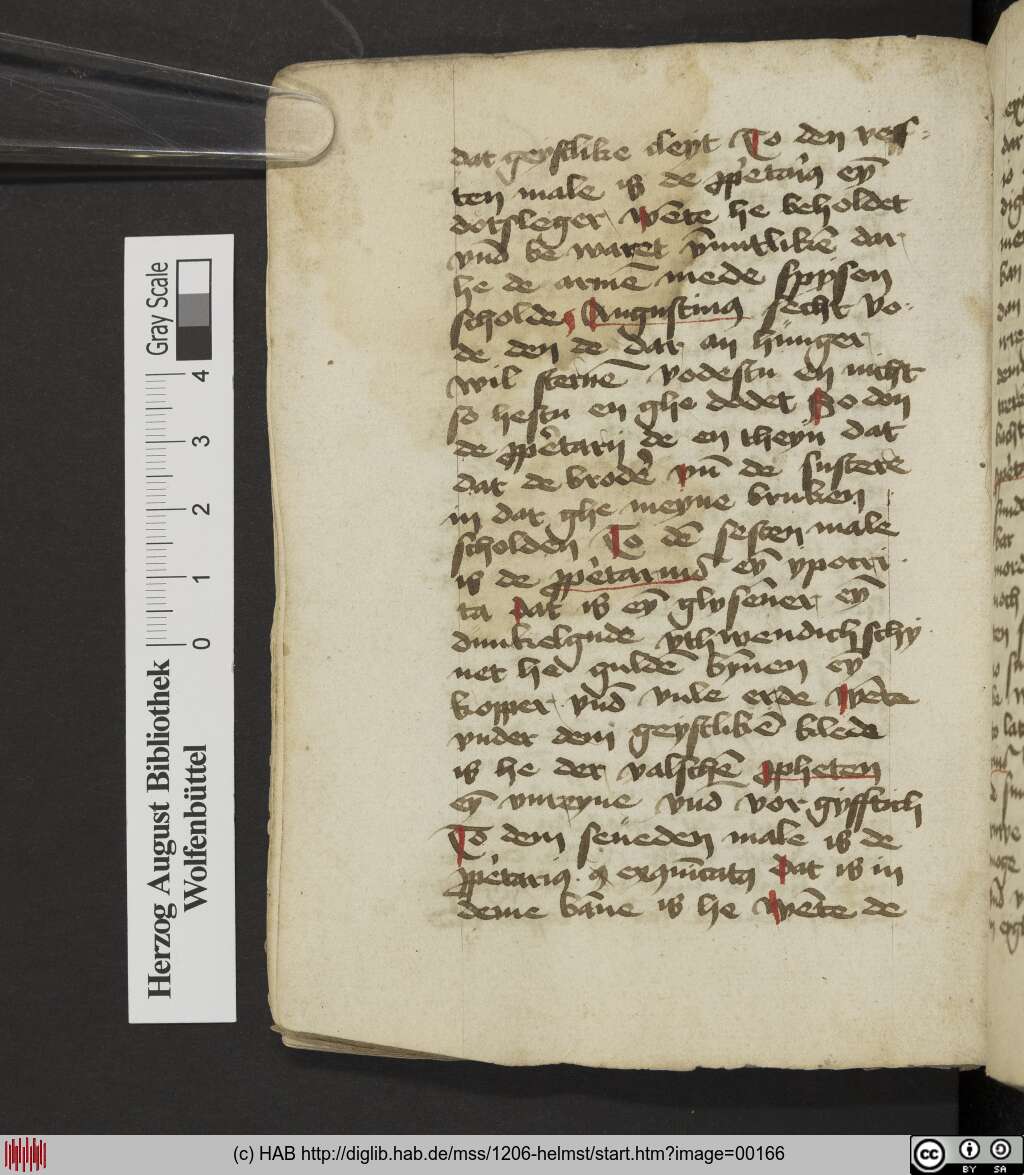 dat geystlike cleyt To den veff-
ten male is de ꝓpͤetariꝯ eyn̄
dotsleger wēte he beholdet
vn̄d be waret v̄nutlikē dar
he de armē mede spysen
scholde Augustinꝯ secht vo-
de den de dar an hunger
wil steruē vodestu en nicht
so hestu en ghe dodet So den
de ꝓpͤetarij de en theyn dat
dat de brodeͤ vn̄ de sustere
in dat ghe meyne bruken
scholden To dē sesten male
is de ꝓpͤetarius eyn̄ ypocri
ta dat is eyn̄ glysener eyn̄
dunkelgude vthwendich schy
net he guldē bȳnen eyn̄
kopper vn̄d vule erde wēte
vnder dem geystlikē klede
is he der valschē ꝓpheten
eyn̄ vnreyne vn̄d vorgyfftich
To dem seueden male is de
ꝓpͤetariꝯ ꝯ excōicatꝯ dat is in
deme bāne is he wēte de
Herzog August Bibliothek
Wolfenbüttel
0 1 2 3 4
Gray Scale
(c) HAB http://diglib.hab.de/mss/1206-helmst/start.htm?image=00166
cc BY SA